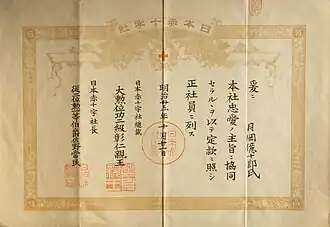 日本赤十字社
月岡億十郎氏
爰ニ
本社忠愛ノ主旨ニ協同
セラルヽヲ以テ定款ニ照シ
正社員ニ列ス
明治廿五年十月廿一日
日本赤十字社總裁
大勲位功二級彰仁親王
日本赤十字社長
從二位勲一等伯爵佐野常民